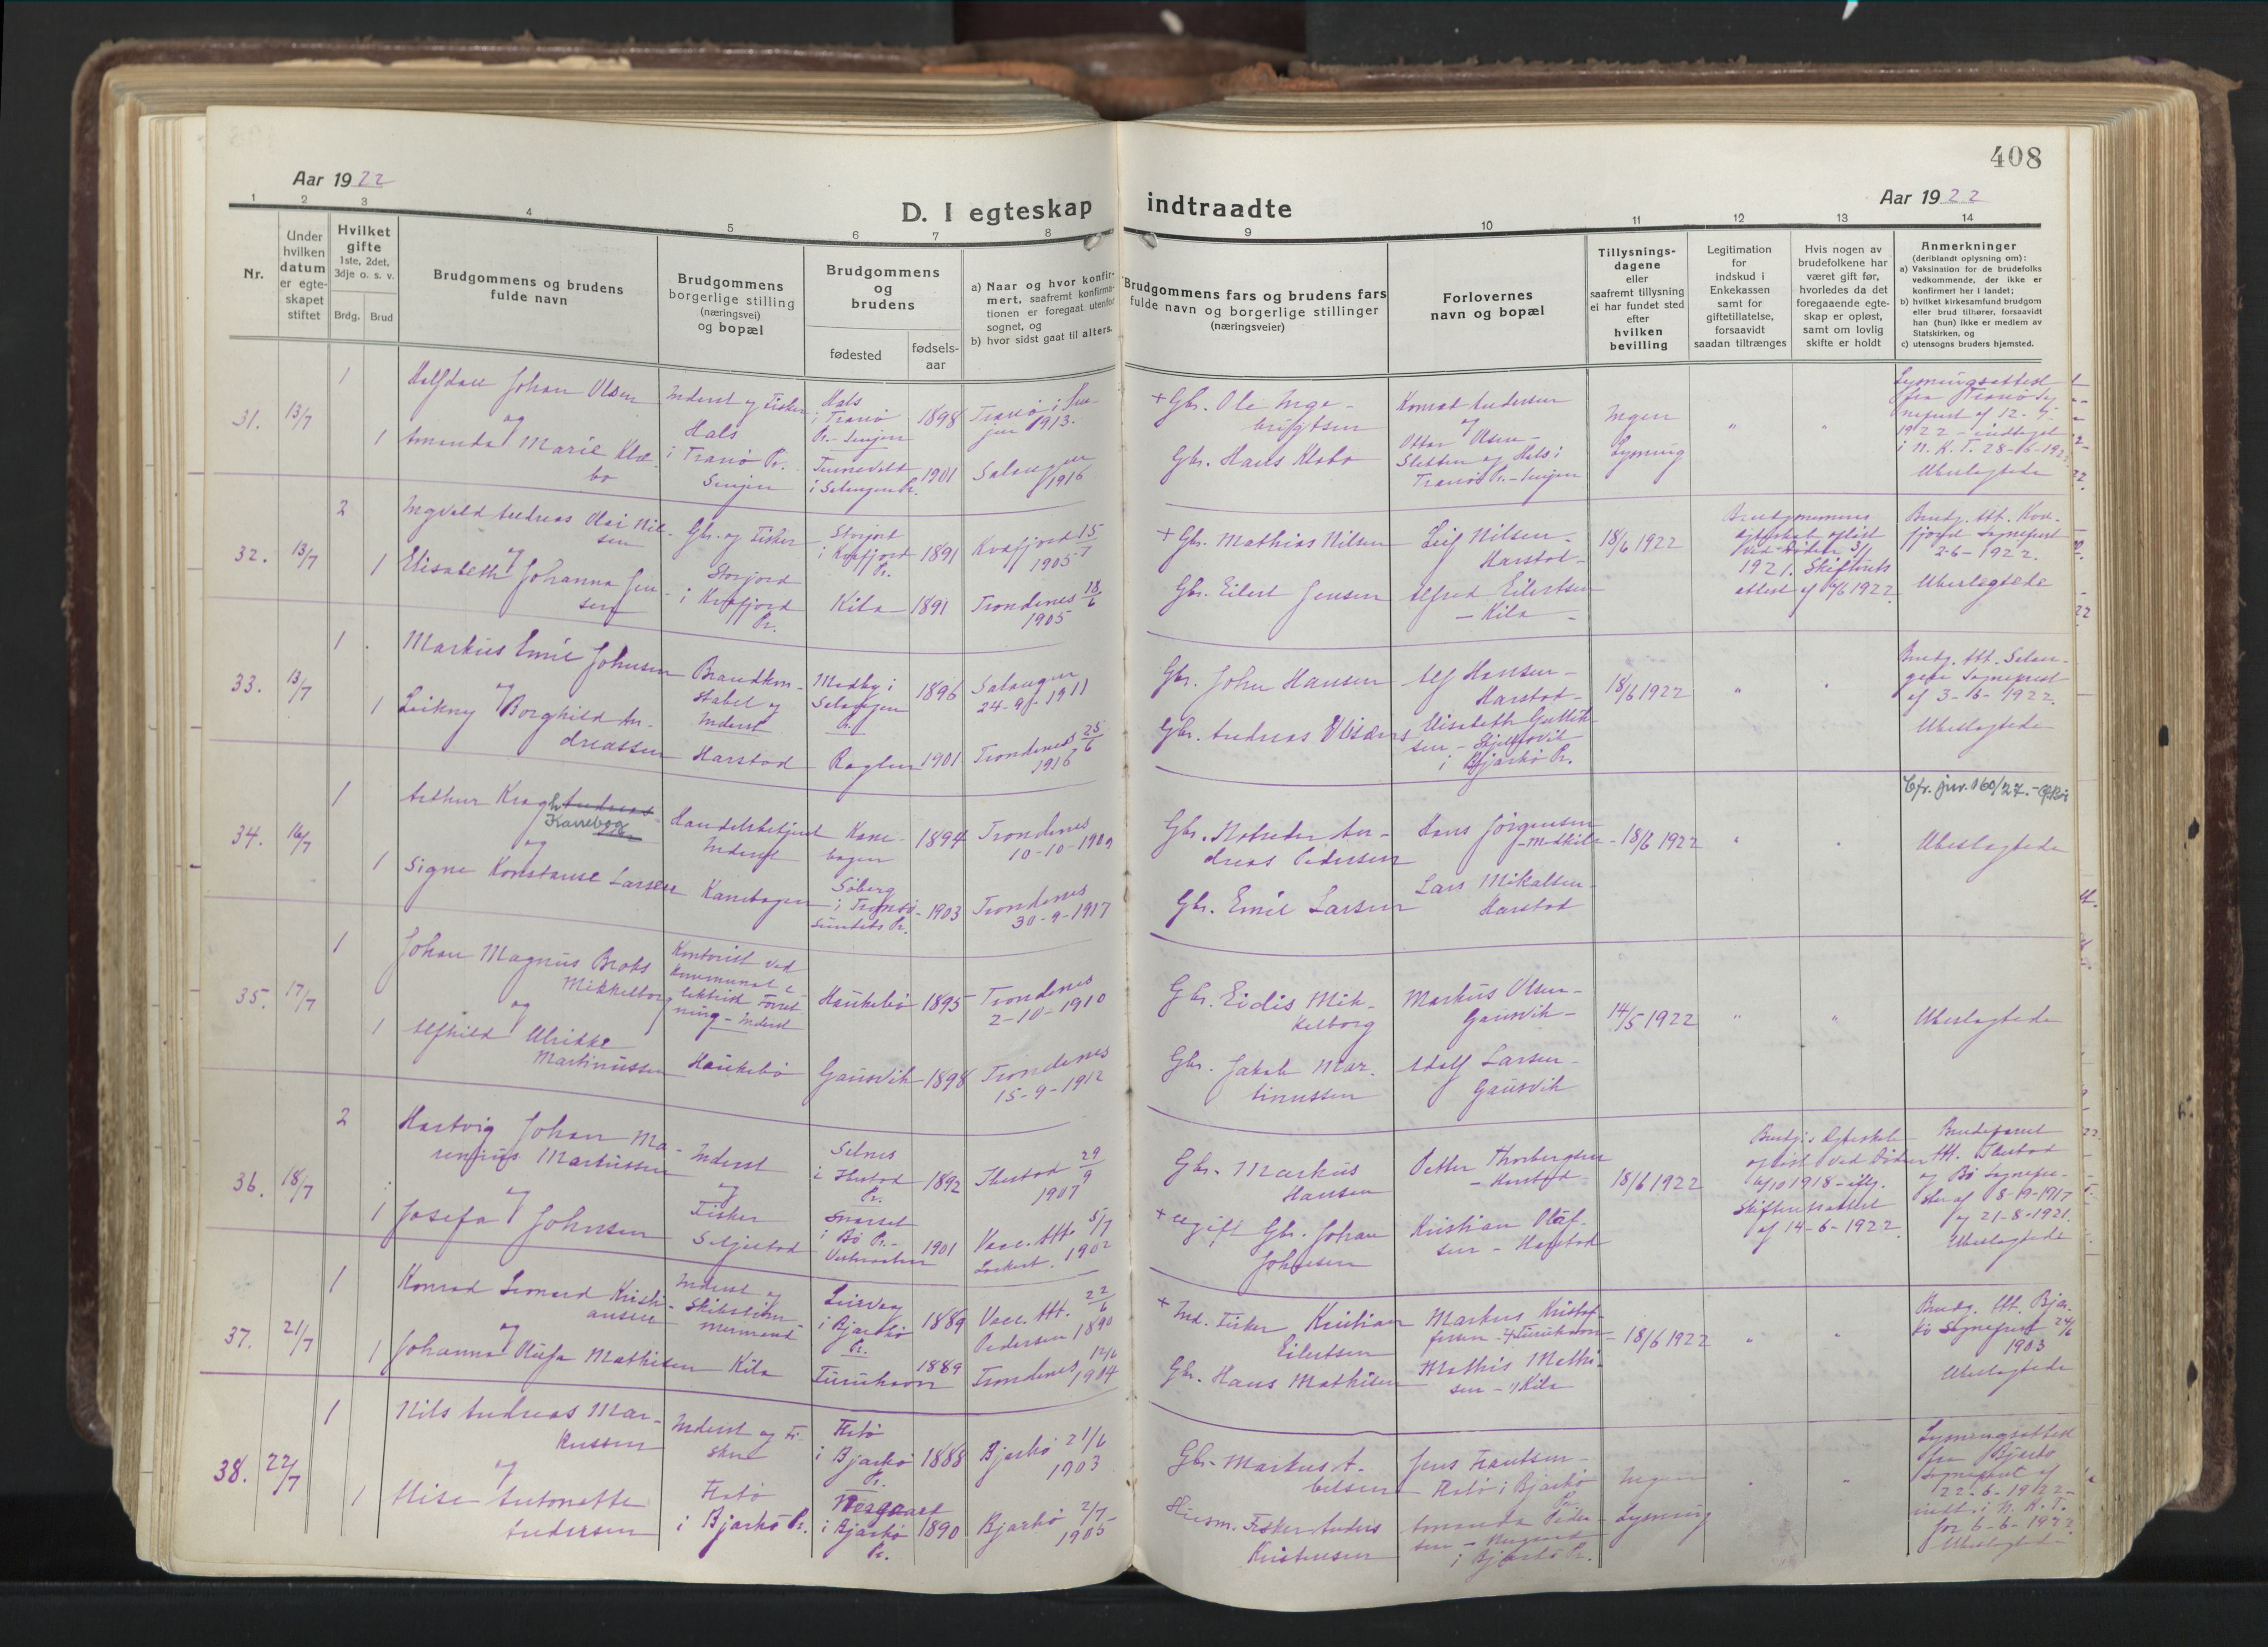 408
Aar 1922
Aar 1922
D. I egteskap
indtraadte
1 2 3 4 5 6 7 8
9 10 11 12 13 14
Nr.
Under hvilken datum er egteskapet stiftet
Hvilket gifte
1ste, 2det, 3dje o. s. v.
Brdg. Brud
Brudgommens og brudens
fulde navn
Brudgommens
borgerlige stilling
(næringsvei)
og bopæl
Brudgommens
og
brudens
fødested
fødsels-
aar
a) Naar og hvor konfir-
mert, saafremt konfirma-
tionen er foregaat utenfor
sognet, og
b) hvor sidst gaat til alters.
Brudgommens fars og brudens fars
fulde navn og borgerlige stillinger
(næringsveier)
Forlovernes
navn og bopæl
Tillysnings-
dagene
eller
saafremt tillysning
ei har fundet sted
efter
hvilken
bevilling
Legitimation
for
indskud i
Enkekassen
samt for
giftetillatelse,
forsaavidt
saadan tiltrænges
Hvis nogen av
brudefolkene har
været gift før,
hvorledes da det
foregaaende egte-
skap er opløst,
samt om lovlig
skifte er holdt
Anmerkninger
(deriblandt oplysning om):
a) Vaksination for de brudefolks
vedkommende, der ikke er
konfirmert her i landet;
b) hvilket kirkesamfund brudgom
eller brud tilhører, forsaavidt
han (hun) ikke er medlem av
Statskirken, og
c) utensogns bruders hjemsted.
31. 13/7
1
Halfdan Johan Olsen
og
1 Amanda Marie Klæ-
bo
Inderst og Fisker
Hals
i Tranø Pr.
Senjen
Hals
i Tranø
Pr. - Senjen
1898
Tranø i Sen-
jen 1913.
i Salangen Pr.
1901
Salangen
1916
+ Gbr. Ole Inge-
brigtsen
Gbr. Hans Klæbo
Konrad Andersen
og
Ottar Olsen -
Sletten og Hals i
Tranø Pr. - Senjen
Ingen
Lysning
"
"
Lysningsattest
fra Tranø Sog-
neprest af 12-
1922 - indtaget
i N. K. T. 28-6-192
Ubeslægtede
32. 13/7
2
Ingvald Andreas Olai Nil-
sen
og
1 Elisabeth Johanna Jen-
sen
Gbr. og Fisker
Storjord
i Kvæfjord
Pr.
Storjord
i Kvæfjord
Pr.
1891
Kvæfjord 15/
1905
Kila
1891
Trondenes 18/6
1905
+ Gbr. Mathias Nilsen
Gbr. Eilert Jensen
Leif Nilsen -
Harstad -
Alfred Eilertsen
- Kila -
18/6 1922
Brudgommens
egteskab opløst
ved Døden 3/1
1921. Skifterets
attest af /6 1922.
Brudg. Att. Kvæ-
fjord Sogneprest
2-6-1922.
Ubeslægtede
33. 13/7
1
Markus Emil Johnsen
og
1 Leikny Borghild An-
dreassen
Brandkon-
stabel og
Inderst
Harstad
Medby i
Salangen
Pr.
1896
Salangen
24-9-1911
1901
Trondenes 25/6
1916
Gbr. John Hansen
Gbr. Andreas
Alf Hansen -
Harstad -
Elisabeth
i Bjarkø Pr.
18/6 1922
"
"
Brudg. Att. Salan-
gen Sogneprest
af 3-6-1922.
Ubeslægtede
34. 16/7
1
Arthur Kragh Andreas-
Kanebog
og
1 Signe Konstanse Larsen
Handelsbetjent
Inderst
Kanebogen
Kane-
bogen
1894
Trondenes
10-10-1909
Søberg
i Tromsø-
sundets Pr.
1903
Trondenes
30-9-1917
dreas Pedersen
Gbr. Emil Larsen
Hans Jørgensen
- Medkila
Lars Mikalsen -
Harstad
18/6 1922
"
"
Cfr. jnr. 160/27.
Ubeslægtede
35. 17/7
1
Johan Magnus Brods
Mikkelborg
og
1 Alfhild Ulrikke
Martinussen
Kontorist ved
kommunal e-
lektrisk Forret-
ning - Inderst
Haukebø
Haukebø
1895
Trondenes
2-10-1910
Gausvik
1898
Trondenes
15-9-1912
Gbr. Eidis Mik-
kelborg
Gbr. Jakob Mar-
tinussen
Markus Olsen -
Gausvik -
Adolf Larsen -
Gausvik
14/5 1922
"
"
Ubeslægtede
36. 18/7
2
Hartvig Johan Ma-
renius Markussen
og
1 Josefa Johnsen
Inderst
og
Fisker
Seljestad
Selnes
i Ibestad
Pr.
1892
Ibestad 29/9
1907
i Bø Pr. -
Vesteraalen
1901
Vacc. Att. 5/7
1902
Gbr. Markus
Hansen
+ ugift Gbr. Johan
Johnsen
Petter Thorbergsen
- Harstad -
Kristian Olaf-
sen - Harstad
18/6 1922
Brudg.s Egteskab
opløst ved Døden
1918 - iflg.
Skifteretsattest
af 14-6-1922.
Brudeparret
Att. Ibestad
og Bø Sognepre-
ster af 8-10-1917
og 21-8-1921.
Ubeslægtede
37. 21/7
1
Konrad Leonard Kristi-
ansen
og
1 Johanna Olufa Mathisen
Inderst og
Skibstøm-
mermand
Kila
Leirvåg
i Bjarkø
Pr.
1889
Vacc. Att. 22/6
Pedersen 1890
Furuhavn
1889
Trondenes
1904
+ Ind. Fisker Kristian
Eilertsen
Gbr. Hans Mathisen
Markus Kristof-
fersen - Furuhavn -
Mathis Mathi-
sen - Kila
18/6 1922
"
"
Brudg. Att. Bjar-
kø Sogneprest 24/6
1903
Ubeslægtede
38. 22/7
1
Nils Andreas Mar-
kussen
og
1 Elise Antonette
Andersen
Inderst og Fi-
sker
Flatø
i Bjarkø Pr.
Flatø
i Bjarkø
Pr.
1888
Bjarkø 21/6
1903
i Bjarkø
Pr.
1890
Bjarkø 2/7
1905
Gbr. Markus A-
belsen
Husm. Fisker Anders
Kristensen
Jens Frantsen -
Flatø i Bjarkø
Pr.
Amanda Peder-
sen -
i Bjarkø Pr.
Ingen
Lysning
"
"
Lysningsattest
fra Bjarkø
Sogneprest af
22-6-1922 -
indt. i N. K. T.
for 6-6-1922.
Ubeslægtede